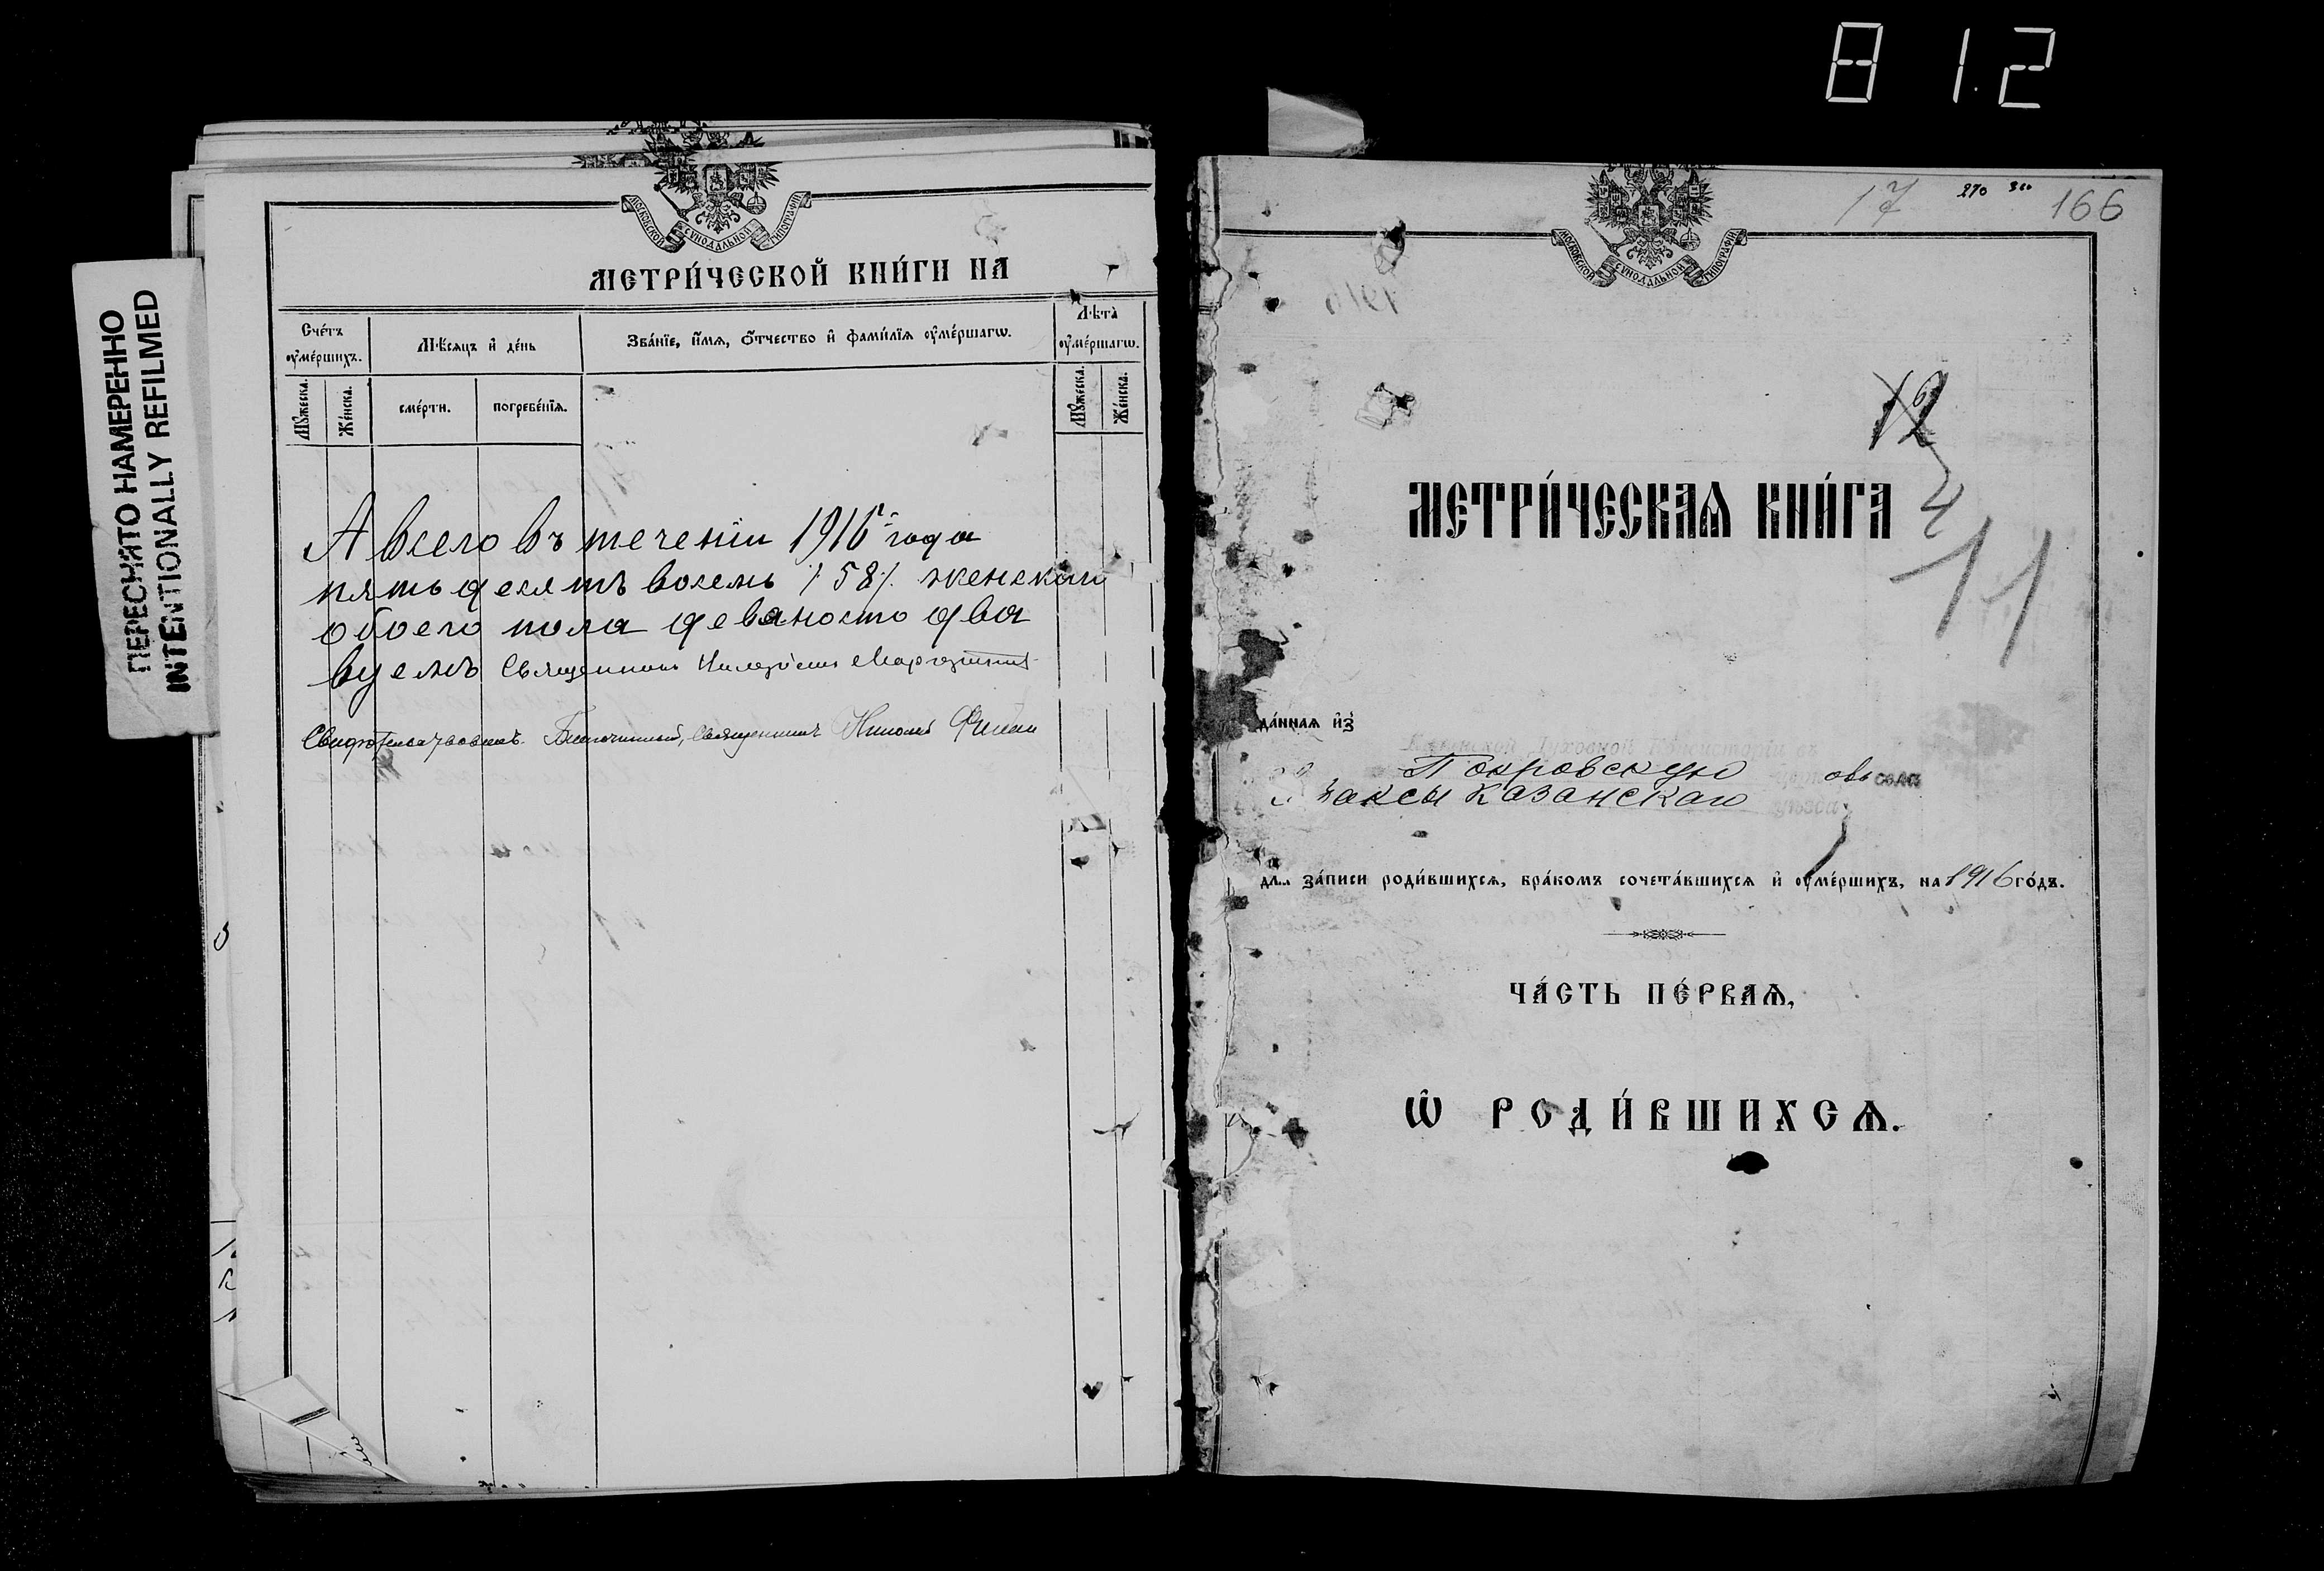 81.2
ПЕРЕСНЯТО НАМЕРЕННО
INTENTIONALLY REFILMED
МОСКОВСКОЙ СѴНОДАЛЬНОЙ ТИПОГРАФІИ
МЕТРИ́ЧЕСКОЙ КНИ́ГИ НА
Сче́тъ ᲂу҆ме́ршихъ.
Мѣ́сяцъ и҆ де́нь
Зва́нїе, и҆́мѧ, ѻ҆́тчество и҆ фами́лїѧ ᲂу҆ме́ршагѡ.
Лѣ́та ᲂу҆ме́ршагѡ.
Мꙋ́жеска.
Же́нска.
сме́рти.
погребе́нїѧ.
Мꙋ́жеска.
Же́нска.
А всего въ теченіи 1916 г. года
пятьдесятъ восемь /58/. женскаго
обоего пола девяносто два
вуемъ Священникъ
Свидѣтельствовалъ. Благочинный, Священникъ Николай
17 270 360 166
МОСКОВСКОЙ СѴНОДАЛЬНОЙ ТИПОГРАФІИ
12
МЕТРИ́ЧЕСКАѦ КНИ́ГА
4
11
да́ннаѧ и҆з̾
Казанской Духовной Консисторіи въ
Покровскую церковь села
Казанскаго уѣзда
для за́писи роди́вшихсѧ, бра́комъ сочета́вшихсѧ и҆ ᲂу҆ме́ршихъ, на 1916 го́дъ.
ЧА́СТЬ ПЕ́РВАѦ,
Ѡ҆ РОДИ́ВШИХСѦ.